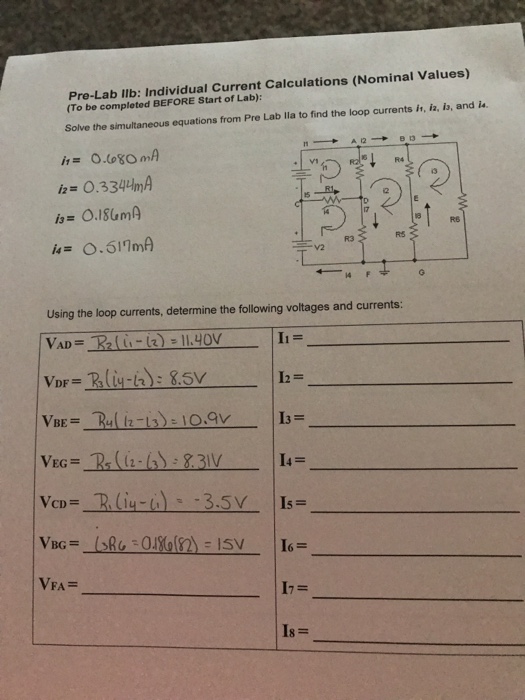 Pre-Lab IIb: Individual Current Calculations (Nominal Values)
(To be completed BEFORE Start of Lab):
Solve the simultaneous equations from Pre Lab IIa to find the loop currents i1, i2, i3, and i4.
i1 = 0.680mA
i2 = 0.3344mA
i3 = 0.186mA
i4 = 0.517mA
I1 A I2 B I3
V1 i1 R2 I6 R4 i3
I5 R1 i2 E
C i4 D I7 I8 R6
V2 R3 R5
I4 F G
Using the loop currents, determine the following voltages and currents:
VAD = R2(i1-i2) = 11.40V I1 =
VDF = R3(i4-i2) = 8.5V I2 =
VBE = R4(i2-i3) = 10.9V I3 =
VEG = R5(i2-i3) = 8.31V I4 =
VCD = R1(i4-i1) = -3.5V I5 =
VBG = i3R6 = 0.186(82) = 15V I6 =
VFA = I7 =
I8 =